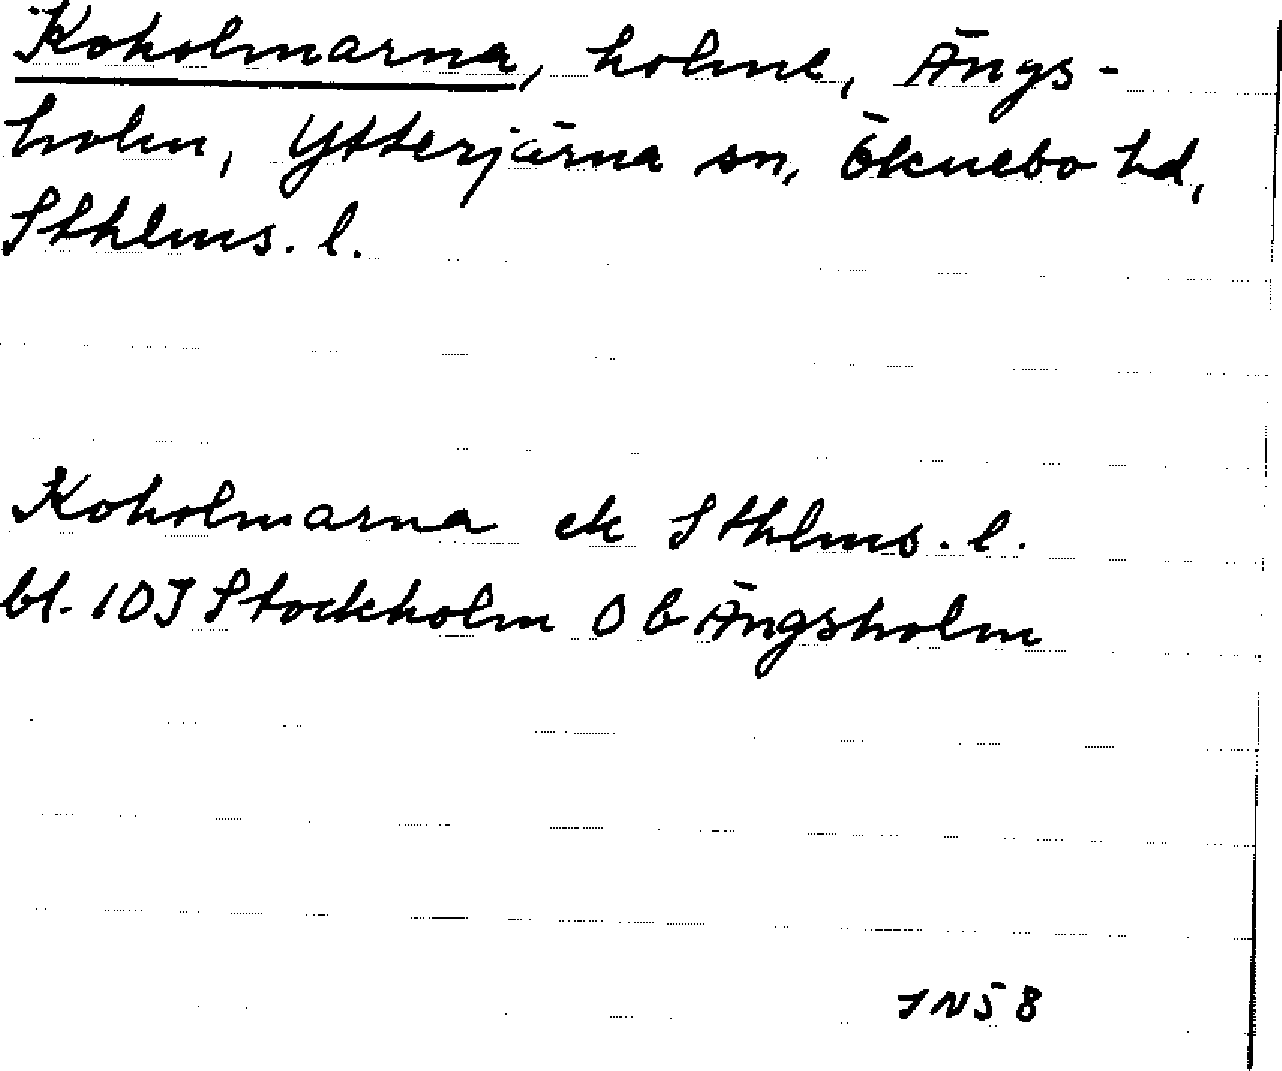 Koholmarna, holme, Ängs-
holm, Ytterjärna sn, Öknebo hd,
Sthlms. l.
Koholmarna ek Sthlms. l.
bl. 10J Stockholm 0 b Ängsholm